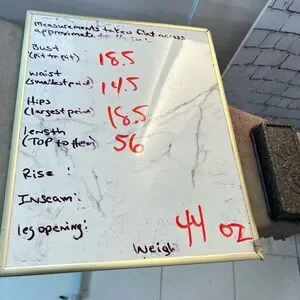 measurements taken flat across
approximate
Bust
(Pit to pit) 18.5
Waist
(smallest point) 14.5
Hips
(largest point) 18.5
Length
(TOP to Hem) 56
Rise :
Inseam :
leg opening :
Weigh 44 oz